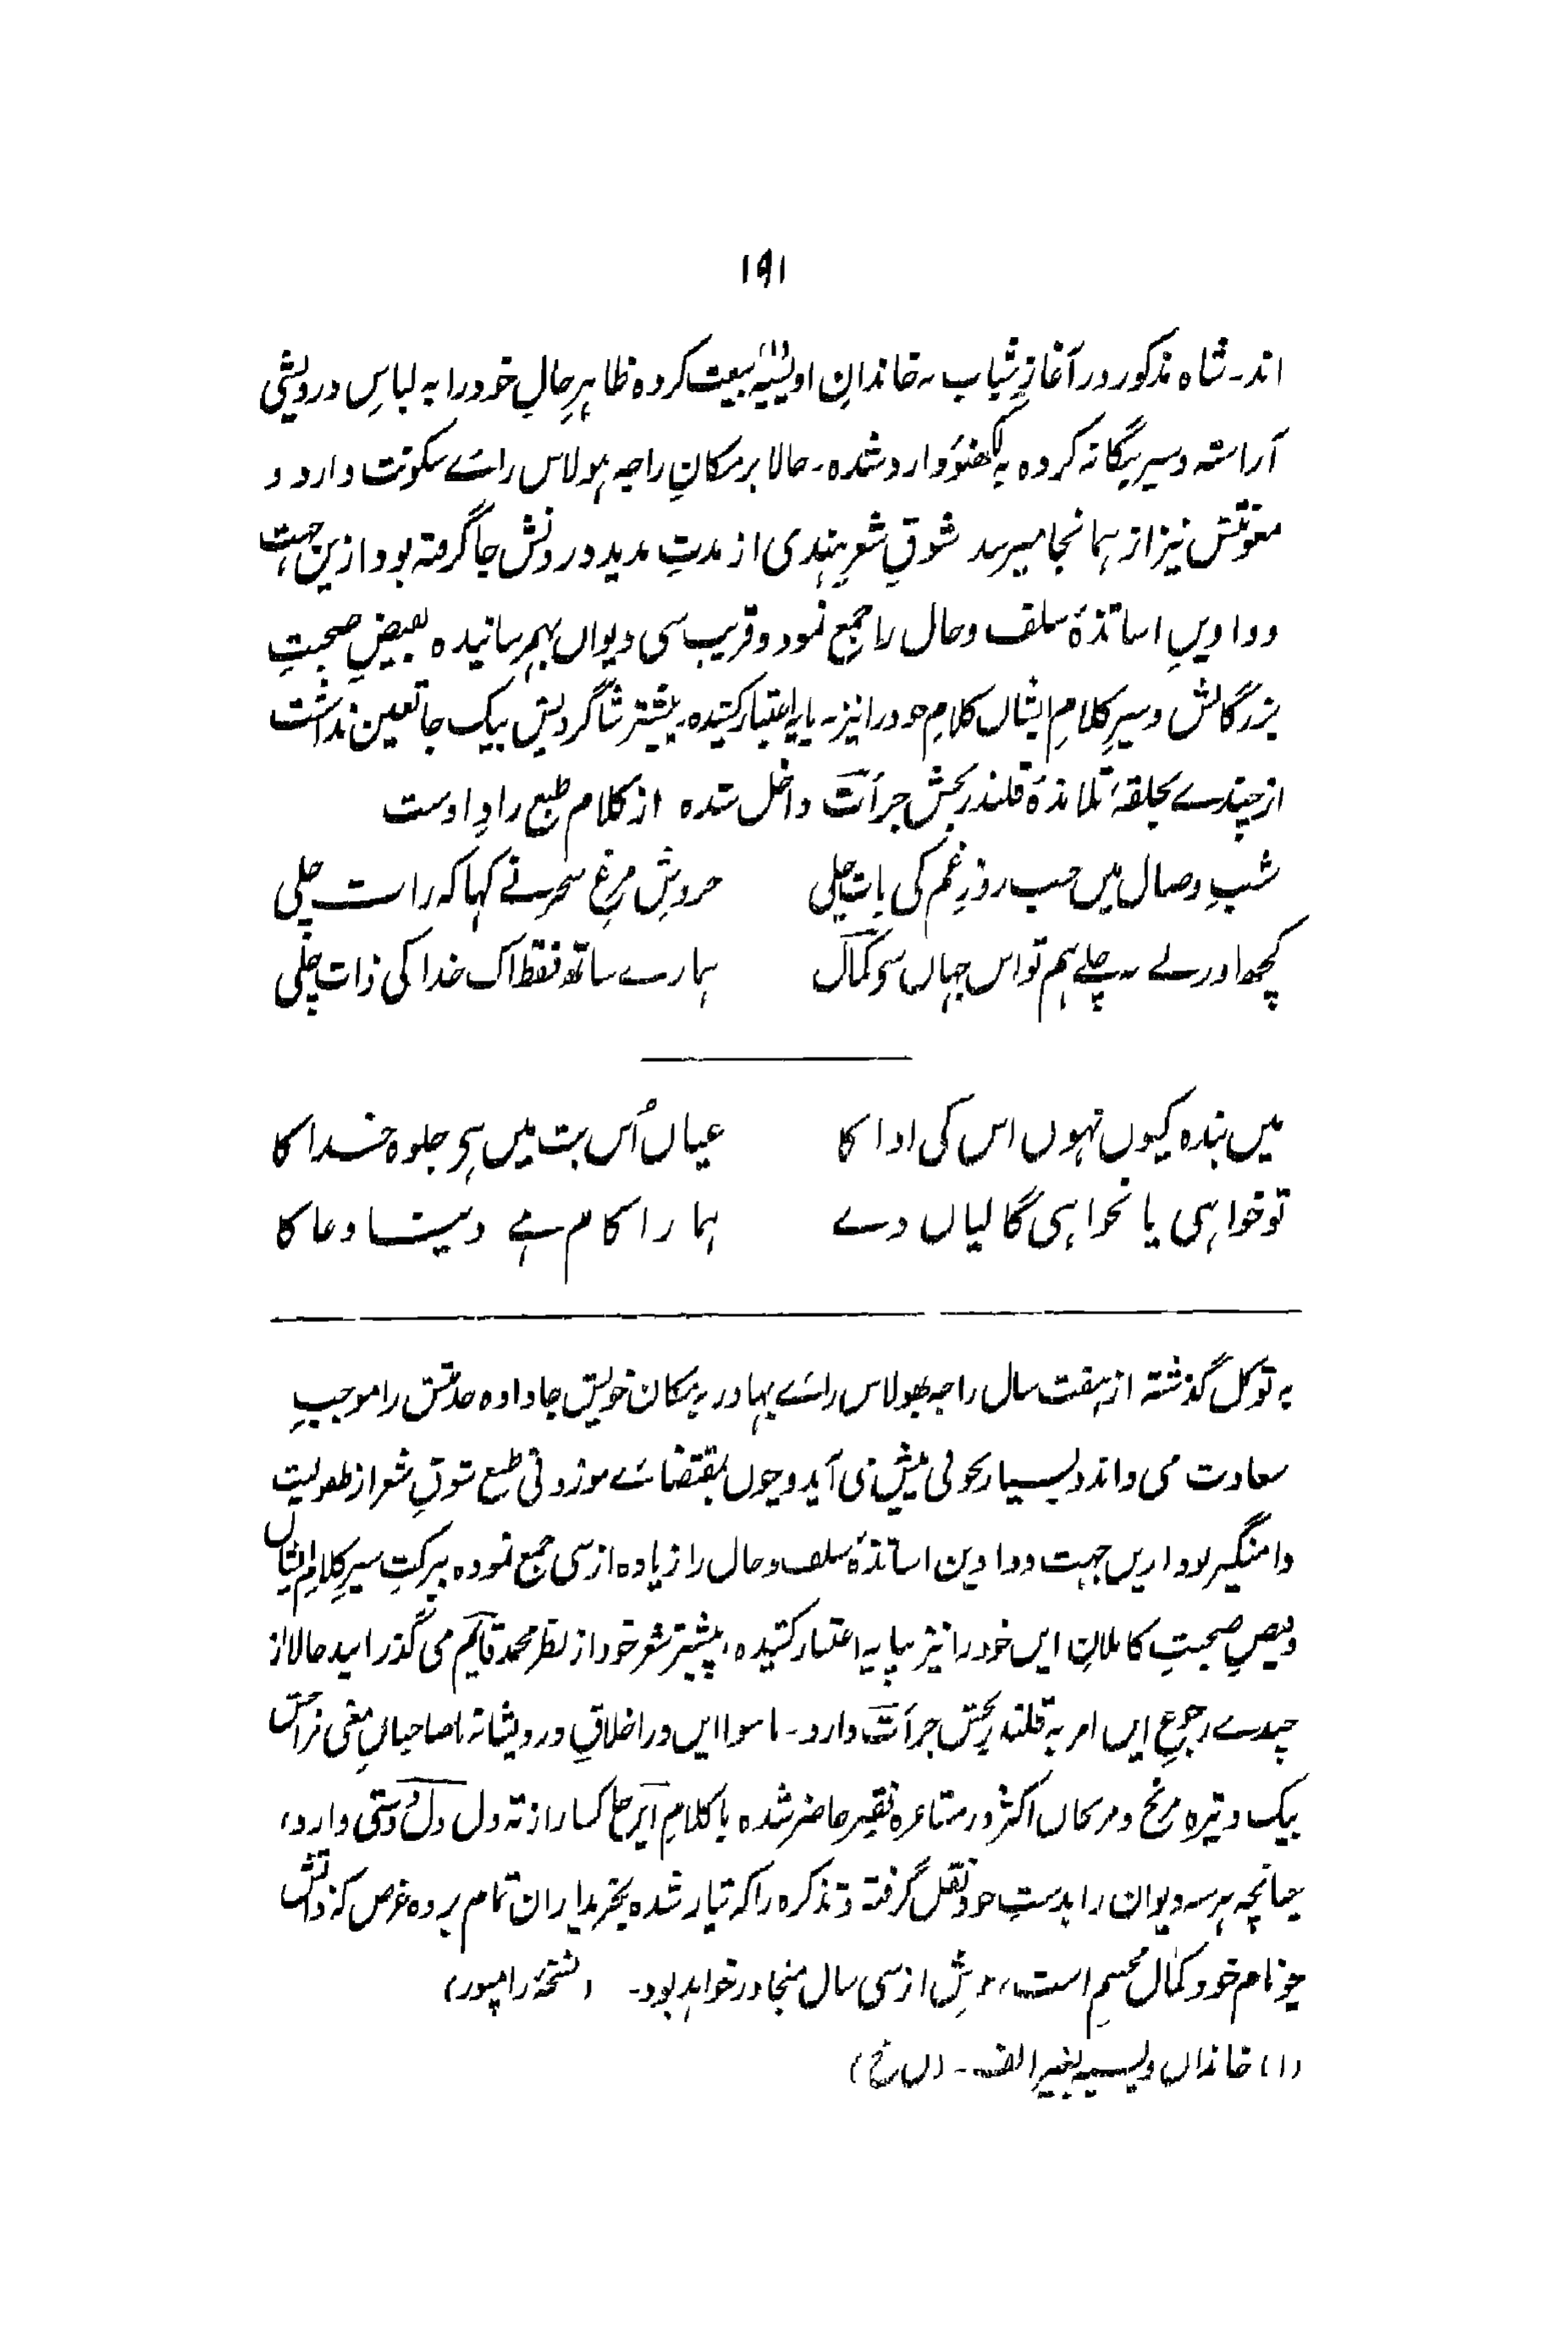 ۱۹۱
اند۔ شاہ مذکور در آغازِ شباب بہ خاندانِ اویسیہ(۱) بیعت کردہ ظاہرِ حالِ خود را بہ لباسِ درویشی
آراستہ و سیر بیگانہ کردہ بہ لکھنؤ وارد شدہ۔ حالا بر مکانِ راجہ ہولاس رائے سکونت دارد و
معونتش نیز از ہمانجا میرسد شوقِ شعرِ ہندی از مدتِ مدید در دلش جا گرفتہ بود ازین جہت
دواوینِ اساتذۂ سلف و حال را جمع نمود و قریب سی دیواں بہم رسانیدہ بفیضِ صحبتِ
بزرگانش و سیرِ کلامِ ایشاں کلامِ خود را نیز بہ پایۂ اعتبار کشیدہ۔ بیشتر شاگردیش بیک جا تعین نداشت
از چندے بحلقۂ تلامذۂ قلندر بخش جرأت داخل شدہ از کلام طبع زادِ اوست
شبِ وصال میں جب روزِ غم کی بات چلی خروشِ مرغِ سحر نے کہا کہ رات چلی
کچھ اور لے نہ چلے ہم تو اس جہاں سو کمال ہمارے ساتھ فقط اک خدا کی ذات چلی
میں بندہ کیوں نہوں اس کی ادا کا عیاں اُس بت میں ہے جلوہ خدا کا
تو خواہی یا نخواہی گالیاں دے ہمارا کام ہے دینا دعا کا
بہ توکل گذشتہ از ہفت سال راجہ بھولاس رائے بہادر بہ مکان خویش جا دادہ خدمتش را موجبِ
سعادت می داند و بسیار بخوبی پیش می آید و چوں بمقتضائے موزونی طبع شوقِ شعر از طفولیت
دامنگیر بود ازیں جہت دواوین اساتذۂ سلف و حال را زیادہ از سی جمع نمودہ ببرکتِ سیرِ کلامِ ایشاں
و فیضِ صحبتِ کاملانِ ایں خود را نیز بپایہ اعتبار کشیدہ، پیشتر شعر خود از نظر محمد قائم می گذرانید حالا از
چندے رجوعِ ایں امر بہ قلندر بخش جرأت دارد۔ ماسوا ایں در اخلاقِ درویشانہ با صاحبانِ معنی
بیک وتیرہ اکثر در مشاعرہ فقیر حاضر شدہ با کلامِ از تہ دل دوستی دارد،
چنانچہ ہر سہ دیوان را بدستِ خود نقل گرفتہ و تذکرہ را کہ تیار شدہ بخریداران تمام بردہ غرض کہ ذاتش
چو نام خود کمال مجسم است، عمرش از سی سال متجاوز خواہد بود۔ (نسخۂ رامپور)
(۱) خانداں ویسیہ بغیر الف۔ (ں خ)